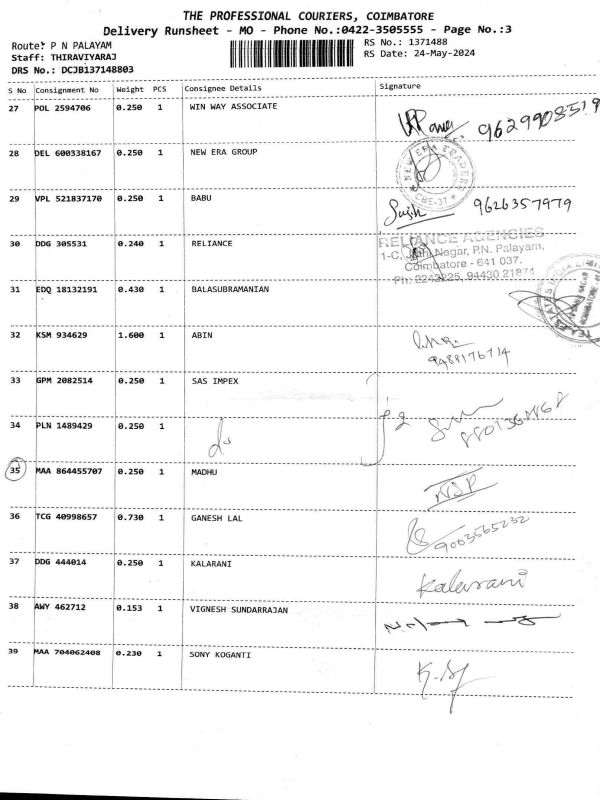 THE PROFESSIONAL COURIERS, COIMBATORE
Delivery Runsheet - MO - Phone No.:0422-3505555 - Page No.:3
Route: P N PALAYAM
RS No.: 1371488
Staff: THIRAVIYARAJ
RS Date: 24-May-2024
DRS No.: DCJB137148803
S No Consignment No Weight PCS Consignee Details Signature
27 POL 2594706 0.250 1 WIN WAY ASSOCIATE
9629908519
28 DEL 600338167 0.250 1 NEW ERA GROUP
NEW ERA TRADERS
CBE-37
29 VPL 521837170 0.250 1 BABU
9626357979
30 DDG 305531 0.240 1 RELIANCE
RELIANCE AGENCIES
Nagar, P.N. Palayam,
Coimbatore - 641 037.
Ph: 2243225, 94430 21871
31 EDQ 18132191 0.430 1 BALASUBRAMANIAN
32 KSM 934629 1.600 1 ABIN
9488176714
33 GPM 2082514 0.250 1 SAS IMPEX
34 PLN 1489429 0.250 1
35 MAA 864455707 0.250 1 MADHU
36 TCG 40998657 0.730 1 GANESH LAL
9003565232
37 DDG 444014 0.250 1 KALARANI
Kalarani
38 AWY 462712 0.153 1 VIGNESH SUNDARRAJAN
39 MAA 704062408 0.230 1 SONY KOGANTI